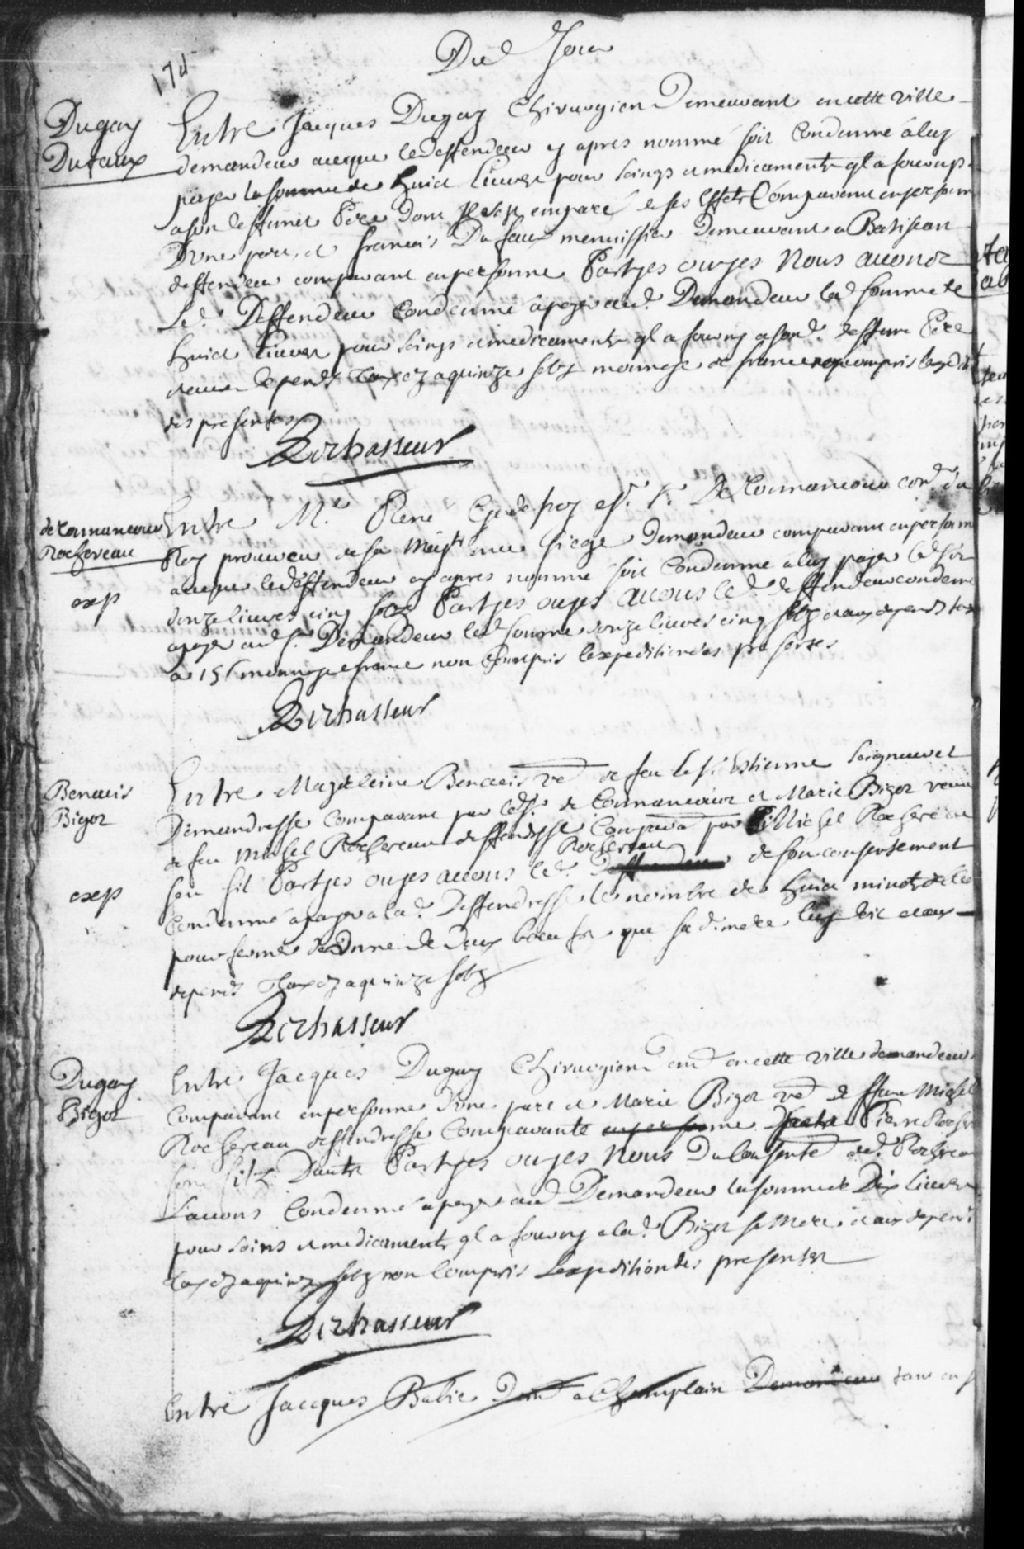 174
Dud Jour
Dugay
Dufaux
Entre Jacques Dugay Chirurgien Demeurant en cette ville
demandeur aceque le deffendeur cy apres nommé soit Condemné a luy
payer la somme de huict Livres pour soings et medicaments ql a fourny
a son deffunct Pere dont il sest emparé de ses Effets Comparant en personne
Dune part, et francois Dufaux menuissier demeurant a Batiscan
deffendeur comparant en personne Partyes ouyes Nous avons
Led. Deffendeur Condemné a payer aud. Demandeur lad. somme de
huict Livres pour soings et medicaments ql a fourny a son d. deffunt Pere
et aux depends taxez a quinze solz monnoye de france non compris lexpedition
des presentes
Lechasseur
de Tonnancour
Rochereau
exp
Entre Mr. René Godefroy esr. Sr. De Tonnancour conr. du
Roy procureur de sa Majté. au siege demandeur comparant en personne
aceque le deffendeur cy apres nommé soit Condemné a luy payer
donze livres cinq solz Partyes ouyes avons led. deffendeur condemné
a payer aud. Sr. Demandeur lad. somme donze livres cinq solz et aux depends taxez
a 15 s monnoye de france non Compris lexpedition des presentes
Lechasseur
Benacis
Bigot
exp
Entre Magdeleine Benacis ve. de feu le Sr. Estienne Seigneuret
Demandresse Comparant par led. Sr. de Tonnancour et Marie Bigot veuve
de feu Michel Rochereau deffendresse Comparant par Michel Rochereau
son fil Partyes ouyes avons led. Rochereau de son consentement
Condemné a payer a lad. Deffendresse le nombre de huict minots de bled
pour ferme dune de Deux boeufs que sa d. mere luy doit et aux
depends Taxez a quinze solz
Lechasseur
Dugay
Bigot
Entre Jacques Dugay Chirurgien en cette ville demandeur
Comparant en personne Dune part et Marie Bigot ve. de ffeu Michel
Rochereau deffendresse Comparante en personne par Pierre Rochereau
son filz Dautre Partyes ouyes Nous Du Consentemt. dud. Rochereau
Lavons Condemné a payer aud. Demandeur la somme de Dix Livres
pour soins et medicaments ql a fourny a lad. Bigot sa Mere et aux depends
taxez a quinze solz non Compris Lexpedition des presentes
Lechasseur
Entre Jacques Babie Demt. a Champlain Demandeur tant en